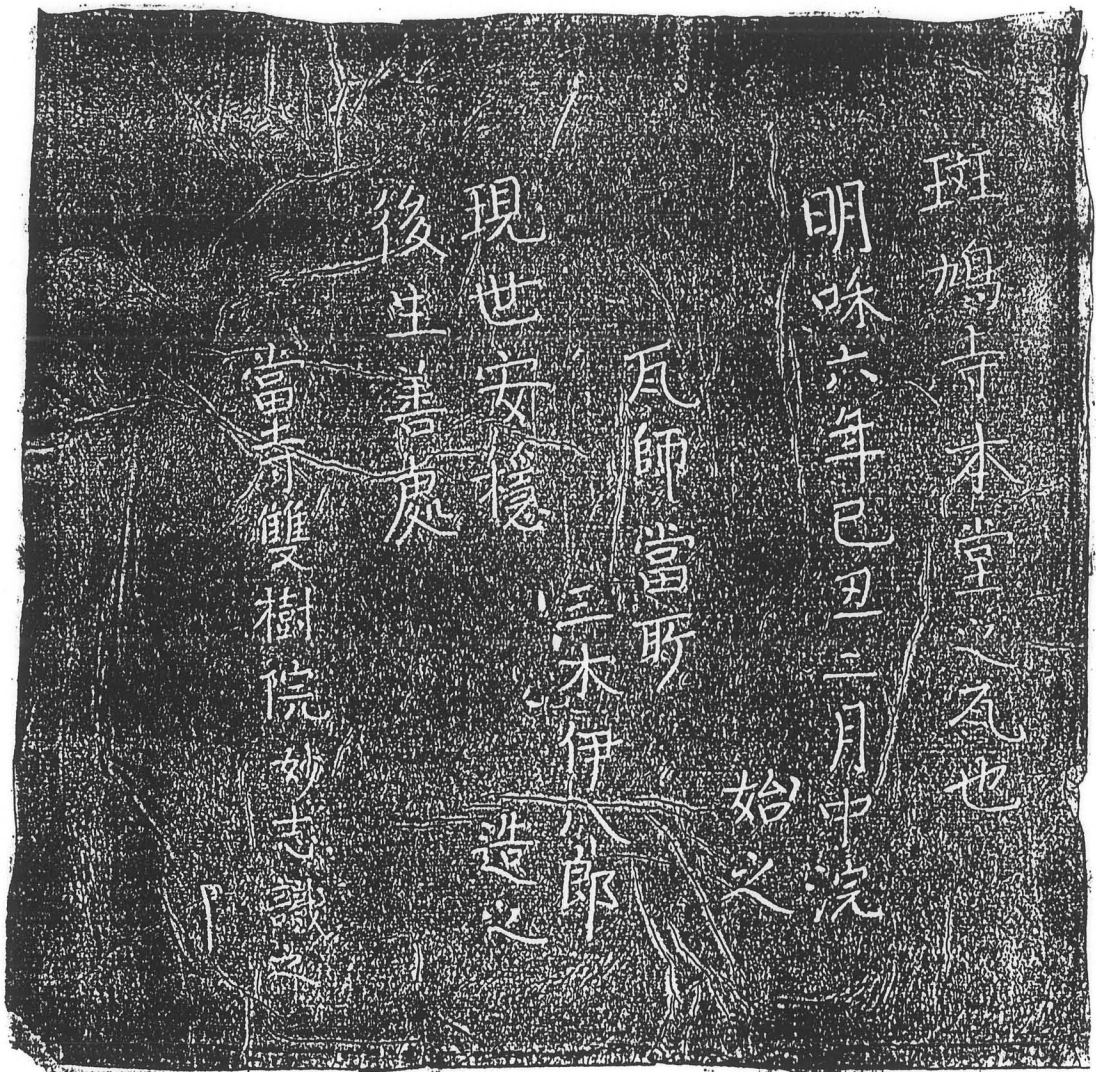 斑鳩寺本堂之瓦也
明咊六年已丑二月中浣
始之
瓦師當所
三木伊八郎
造之
現世安穏
後生善處
當寺雙樹院妙志識之